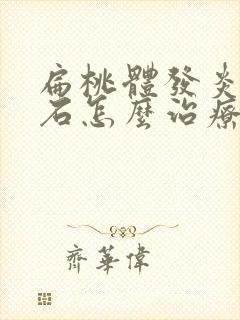 扁桃體發炎
石怎麼治療
齊華偉